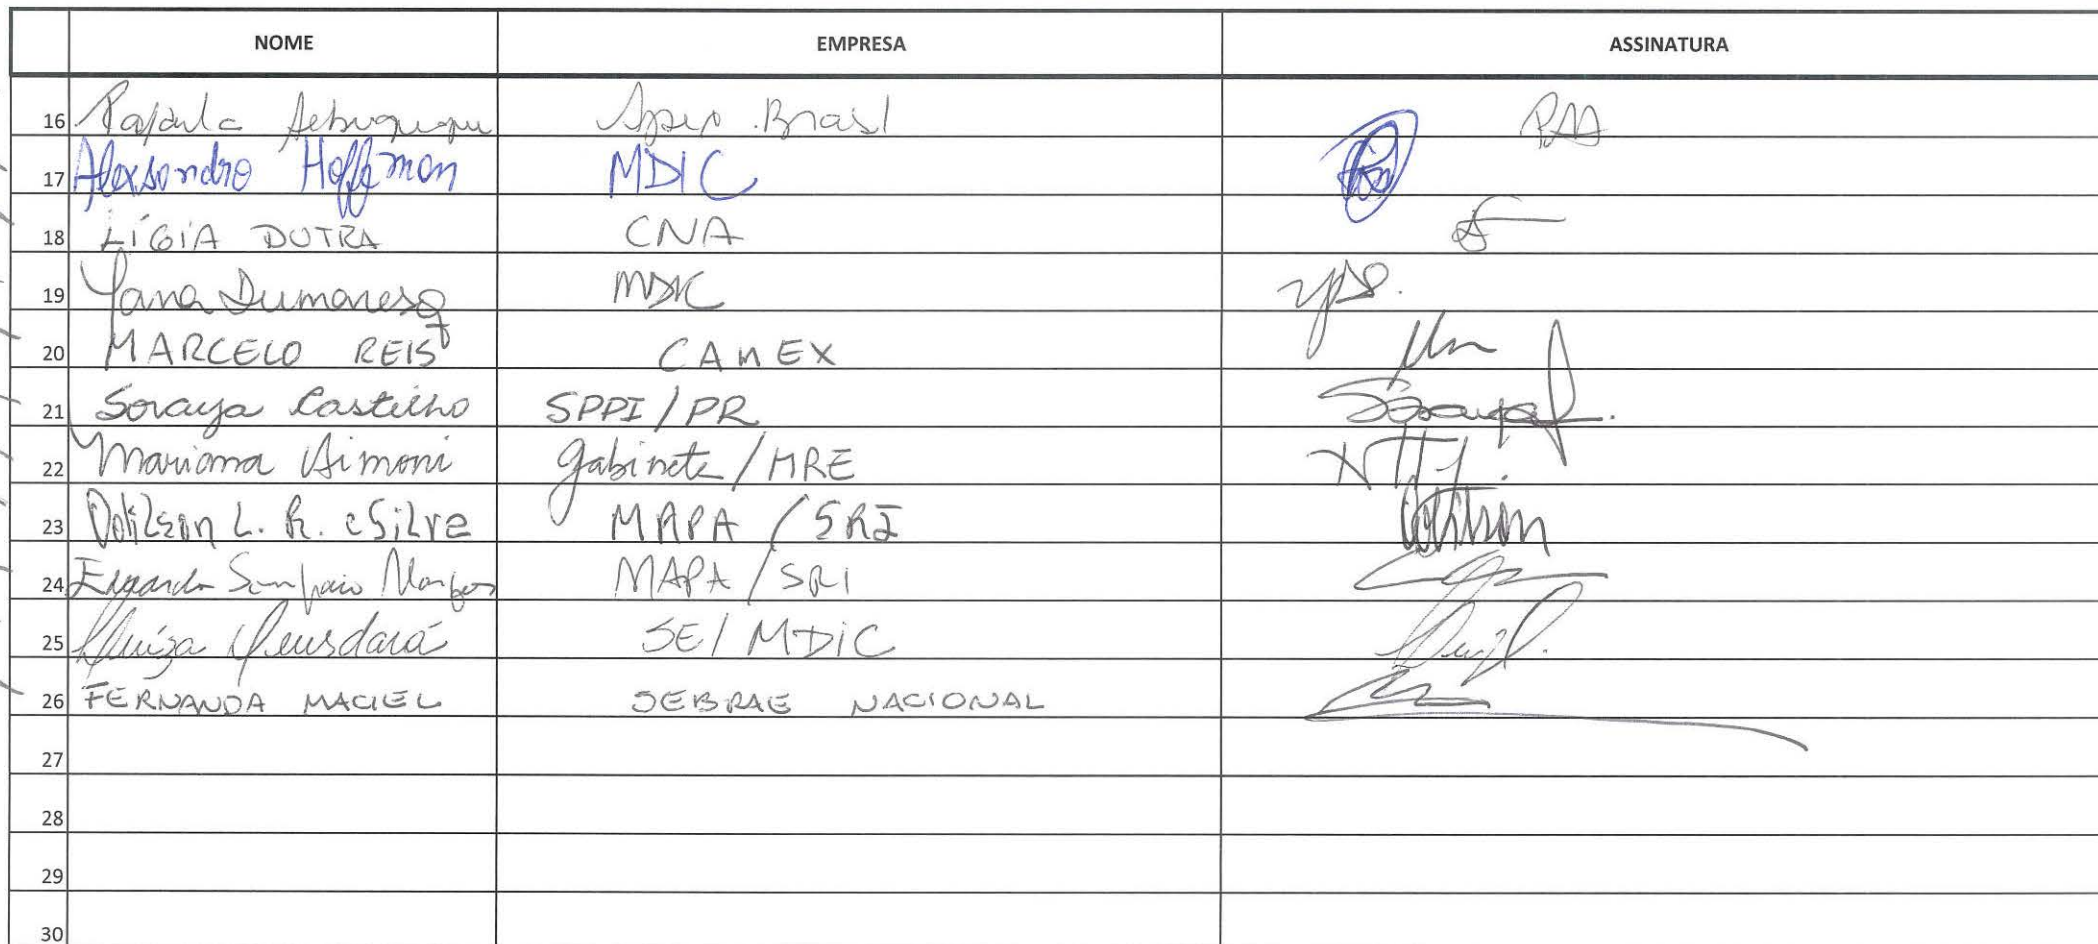 NOME EMPRESA ASSINATURA
16 Rafaela Albuquerque Apex.Brasil RAA
17 Alexsandro Hoffman MDIC
18 LÍGIA DUTRA CNA
19 Yana Dumaresq MDIC YDS.
20 MARCELO REIS CAMEX
21 Soraya Castilho SPPI/PR Soraya
22 Mariana Simoni Gabinete/MRE
23 L. R. e Silva MAPA/SRI
24 Eduardo Sampaio Marques MAPA/SRI
25 Luíza Deusdará SE/MDIC
26 FERNANDA MACIEL SEBRAE NACIONAL
27
28
29
30